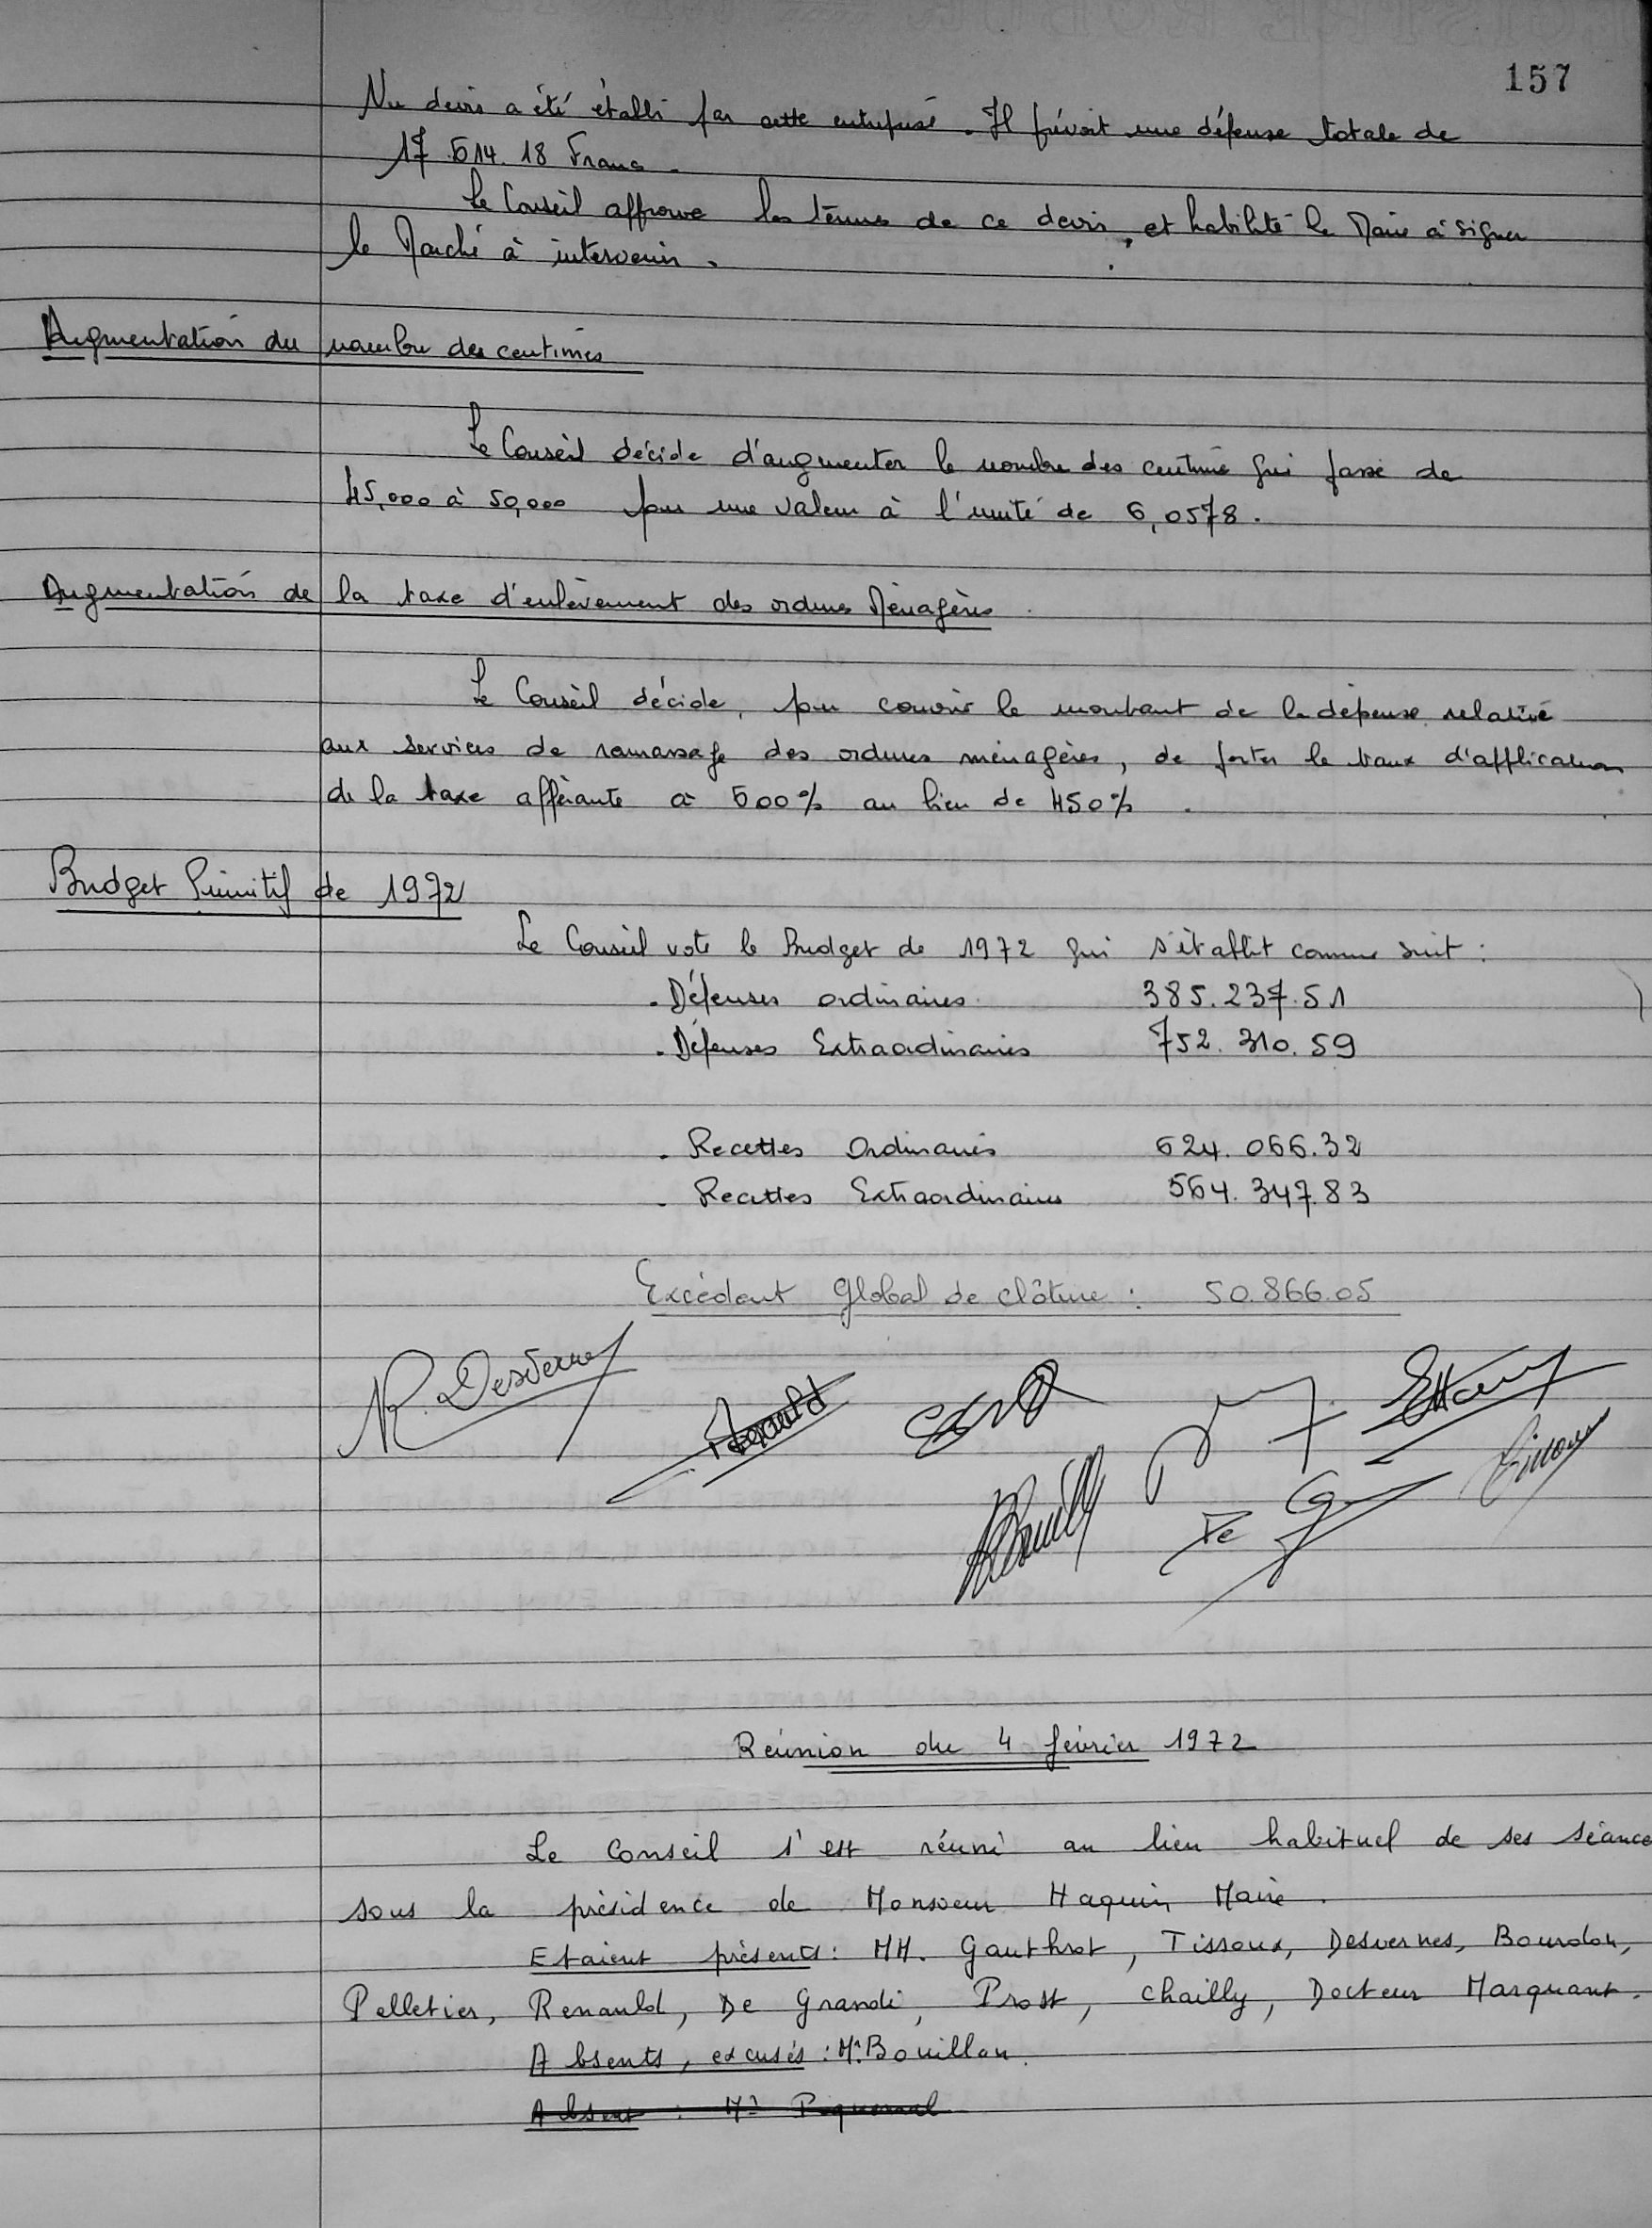 157
Un devis a été établi par cette entreprise. Il prévoit une dépense totale de
17.614.18 Francs.
Le Conseil approuve les termes de ce devis, et habilite le Maire à signer
le Marché à intervenir.
Augmentation du nombre des centimes
Le Conseil décide d'augmenter le nombre des centimes qui passe de
45,000 à 50,000 pour une valeur à l'unité de 6,0578.
Augmentation de la taxe d'enlèvement des ordures Ménagères.
Le Conseil décide, pour couvrir le montant de la dépense relative
aux services de ramassage des ordures ménagères, de porter le taux d'application
de la taxe afférante à 600% au lieu de 450%.
Budget Primitif de 1972
Le Conseil vote le Budget de 1972 qui s'établit comme suit :
. Dépenses ordinaires 385.237.51
. Dépenses Extraordinaires 752.310.59
. Recettes Ordinaires 624.066.32
. Recettes Extraordinaires 564.347.83
Excédent Global de clôture : 50.866.05
R. Desvernes Renauld
De G
Réunion du 4 février 1972
Le Conseil s'est réuni au lieu habituel de ses séance
sous la présidence de Monsieur Haquin Maire.
Etaient présents : MM. Gauthrot, Tissoux, Desvernes, Bourdon,
Pelletier, Renauld, De Grandi, Prost, Chailly, Docteur Marquant.
Absents, excusés : Mr Bouillon.
Absent : Mr